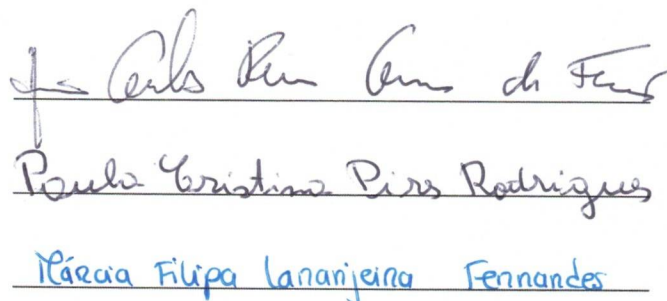 Carlos de
Paula Cristina Pires Rodrigues
Márcia Filipa Laranjeira Fernandes